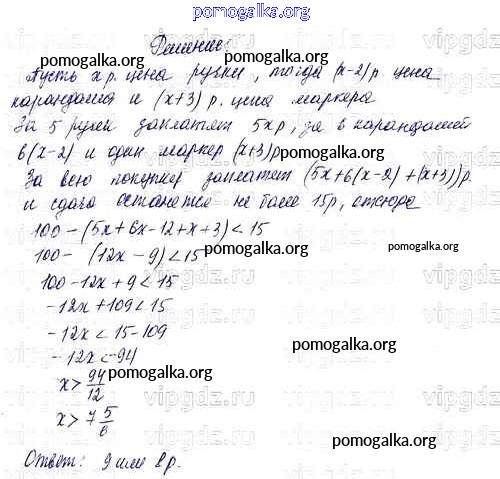 pomogalka.org
Решение:
Пусть x р. цена ручки, тогда (x-2) р. цена
карандаша и (x+3) р. цена маркера
За 5 ручек заплатят 5x р, за 6 карандашей
6(x-2) и один маркер (x+3)р
За всю покупку заплатят (5x+6(x-2)+(x+3))р.
и сдачи останется не более 15р, отсюда
100-(5x+6x-12+x+3)<15
100- (12x-9)<15
100-12x+9<15
-12x+109<15
-12x<15-109
-12x<-94
x>94/12
x>7 5/6
Ответ: 9 или 8р.
pomogalka.org
pomogalka.org
pomogalka.org
pomogalka.org
pomogalka.org
pomogalka.org
pomogalka.org